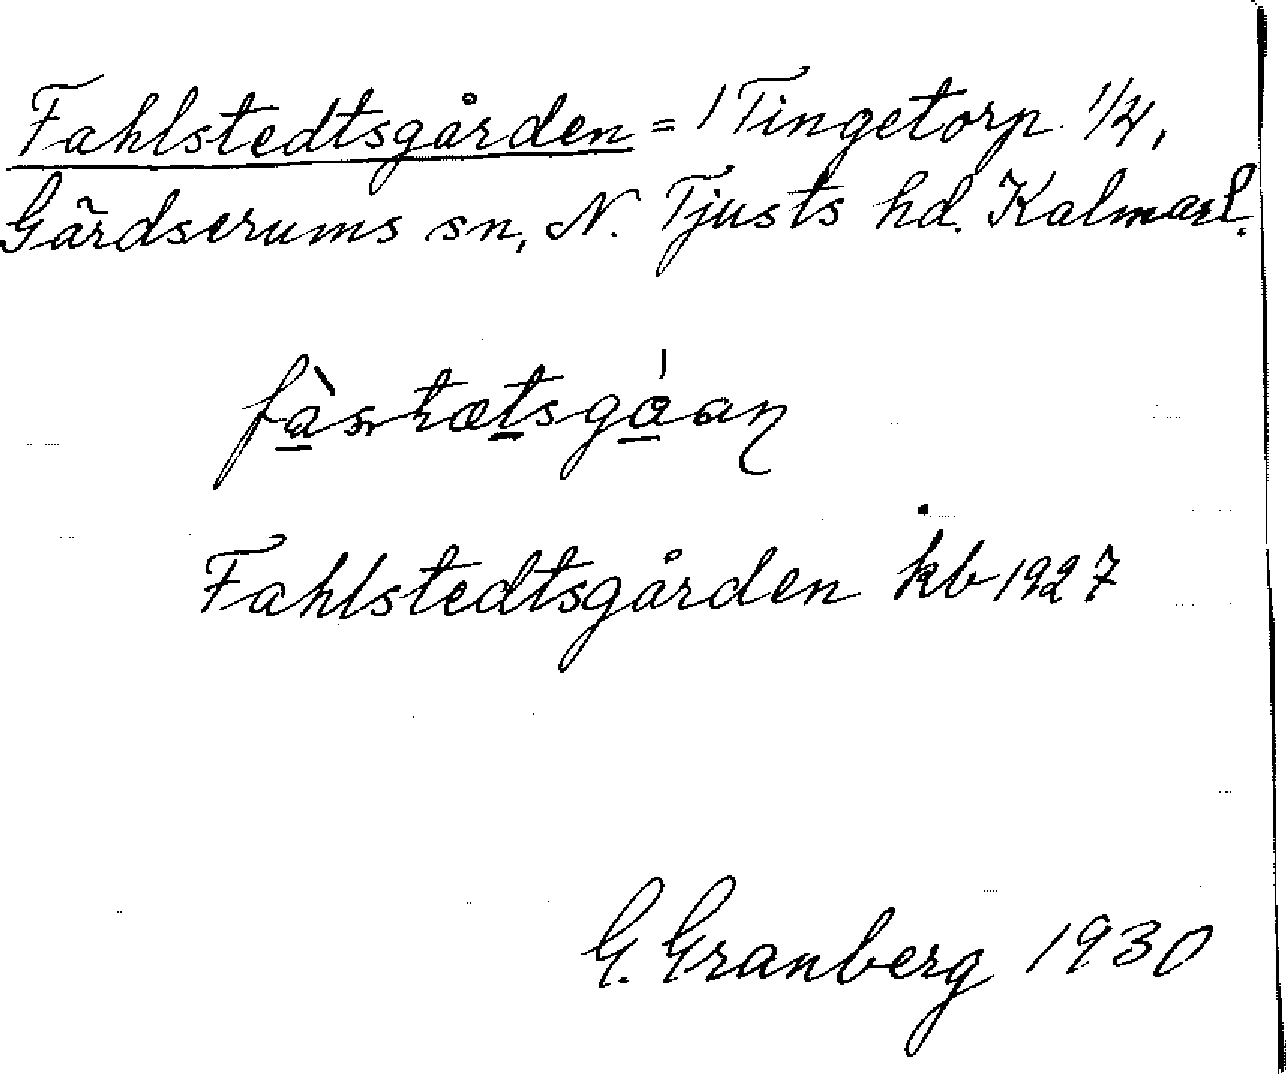 Fahlstedtsgården = 1 Tingetorp 1/4,
Gärdserums sn, N. Tjusts hd. Kalmarl.
Fahlstedtsgården kb 1927
G. Granberg 1930